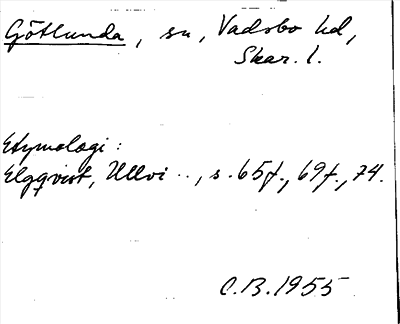 Götlunda, sn, Vadsbo hd,
Skar. l.
Etymologi:
Elgqvist, Ullvi .., s. 65f., 69f., 74.
C.B. 1955